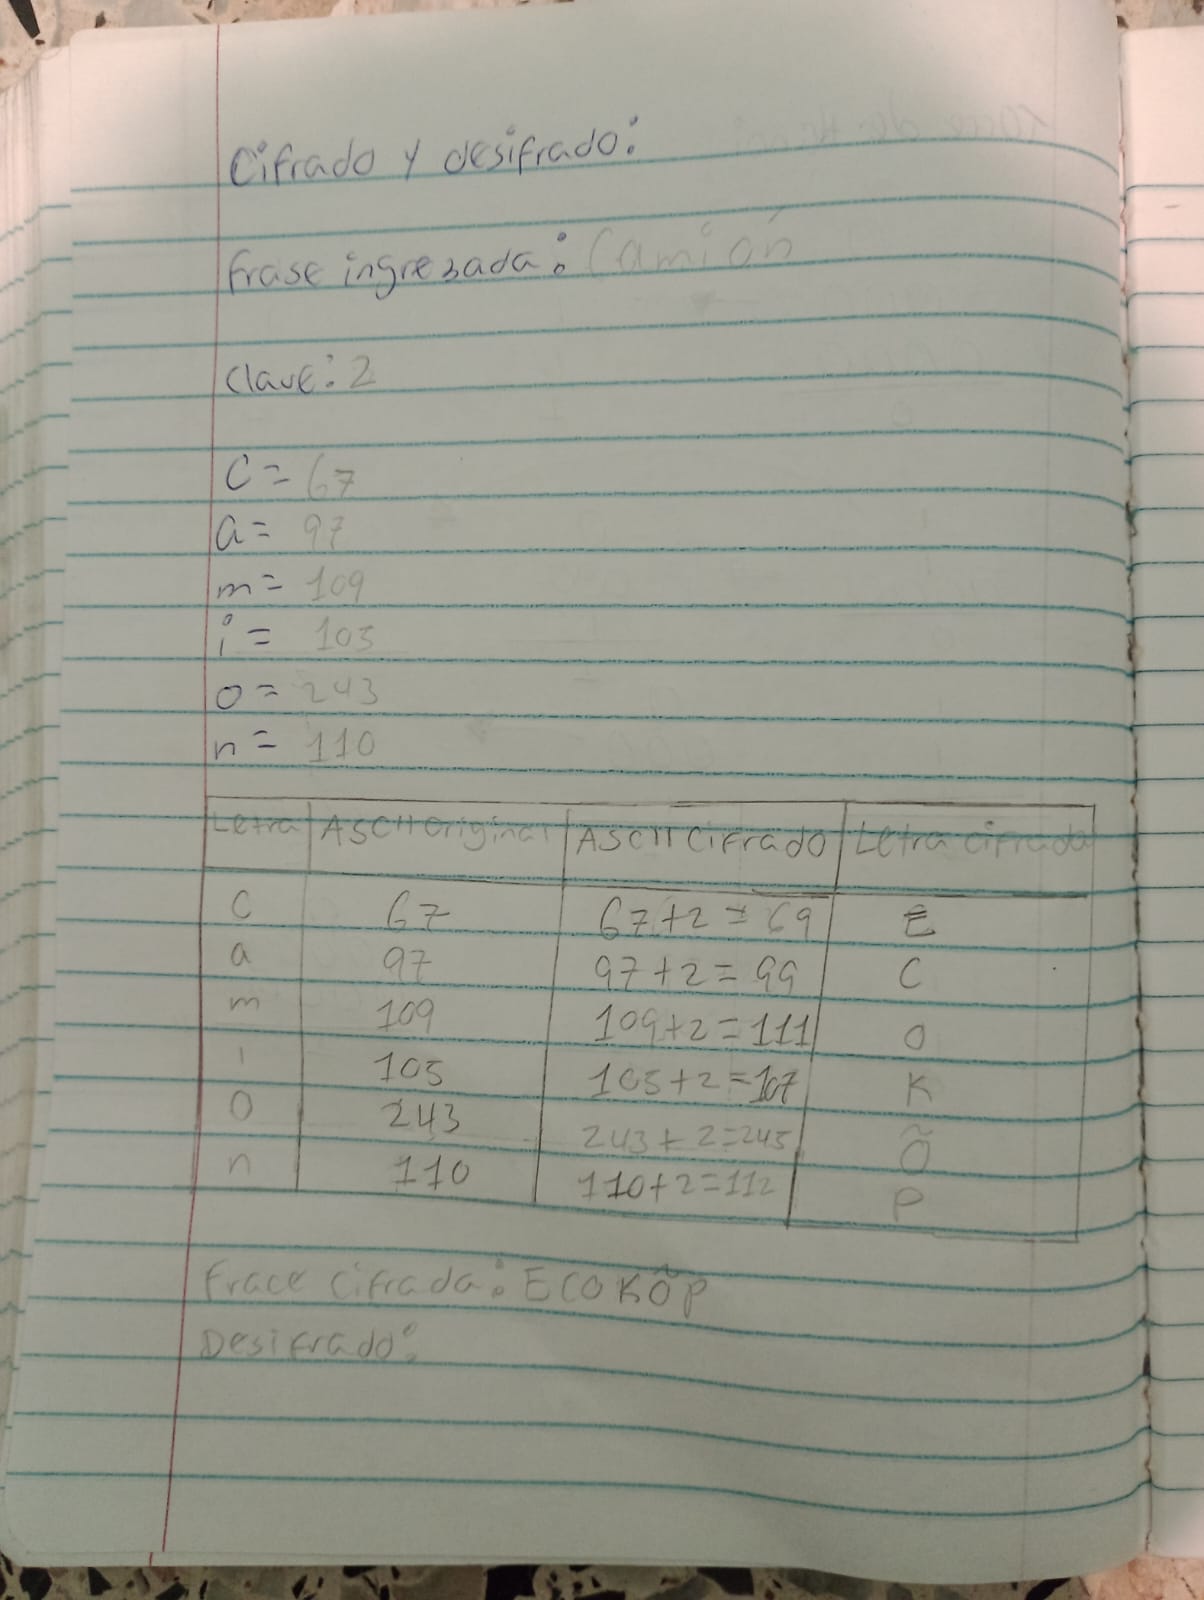 Cifrado y desifrado:
frase ingresada: Camión
Clave: 2
C = 67
a = 97
m = 109
i = 105
o = 243
n = 110
Letra ASCII Original ASCII Cifrado Letra cifrada
C 67 67+2=69 E
a 97 97+2=99 C
m 109 109+2=111 O
i 105 105+2=107 K
O 243 243+2=245 Õ
n 110 110+2=112 P
Frace Cifrada: ECOKÕP
Desifrado: